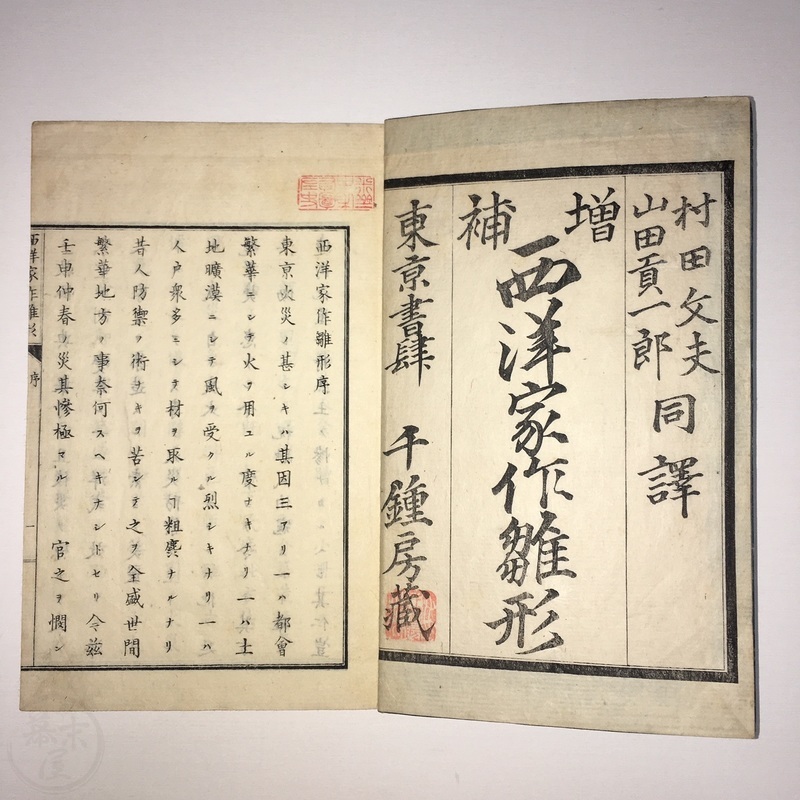 村田文夫
山田貢一郎
同譯
増補
西洋家作雛形
東京書肆 千鍾房藏
西洋家作雛形序
東京火災ノ甚シキハ其因三アリ一ハ都會
繁華ニシテ火ヲ用ユル度ナキナリ一ハ土
地曠漠ニシテ風ヲ受クル烈シキナリ一ハ
人戸衆多ニシテ材ヲ取ルヿ粗麁ナルナリ
昔人防禦ノ術ナキヲ苦シテ之ヲ全盛世間
繁華地方ノ事奈何スヘキナシトセリ今茲
壬申仲春ノ災其慘極マル 官之ヲ憫ン
西洋家作雛形
序
一
幕末屋